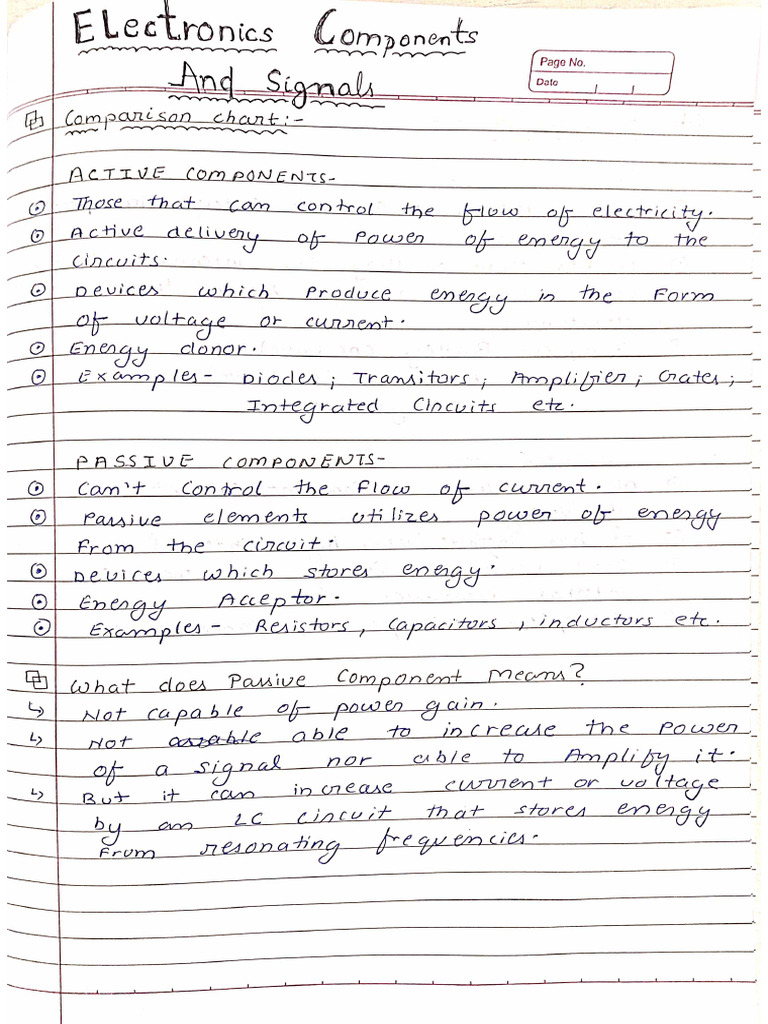 Electronics Components
And Signals
Page No.
Date
Comparison chart:-
ACTIVE COMPONENTS-
Those that can control the flow of electricity.
Active delivery of power of energy to the
circuits.
Devices which produce energy in the form
of voltage or current.
Energy donor.
Examples- Diodes; Transitors; Amplifier; Gates;
Integrated Circuits etc.
PASSIVE COMPONENTS-
Can't control the flow of current.
Passive elements utilizes power of energy
from the circuit.
Devices which stores energy.
Energy Acceptor.
Examples- Resistors, Capacitors, inductors etc.
What does Passive Component Means?
Not capable of power gain.
Not able to increase the power
of a signal nor able to Amplify it.
But it can increase current or voltage
by an LC circuit that stores energy
from resonating frequencies.